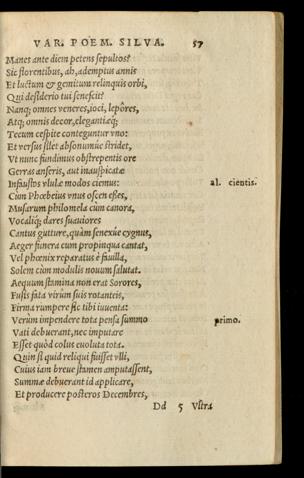 VAR. POEM. SILVA. 57
Manes ante diem petens sepultos?
Sic florentibus, ah, ademptus annis
Et luctum & gemitum relinquis orbi,
Qui desiderio tui senescit?
Nanq; omnes veneres, ioci, lepôres,
Atq; omnis decor, elegantiæq;
Tecum cespite conteguntur vno:
Et versus silet absonumue stridet,
Vt nunc fundimus obstrepentis ore
Gerras anseris, aut inauspicatæ
Infaustos vlulæ modos ciemus: al. cientis.
Cùm Phœbeius vnus oscen esses,
Musarum philomela cùm canora,
Vocaliq; dares suauiores
Cantus gutture, quàm senexúe cygnus,
Aeger funera cum propinqua cantat,
Vel phœnix reparatus è fauilla,
Solem cùm modulis nouum salutat.
Aequum stamina non erat Sorores,
Fusis fata virûm suis rotanteis,
Firma rumpere sic tibi iuuenta:
Verùm impendere tota pensa summo primo.
Vati debuerant, nec imputare
Esset quòd colus euoluta tota.
Quin si quid reliqui fuisset vlli,
Cuius iam breue stamen amputassent,
Summæ debuerant id applicare,
Et producere posteros Decembres,
Dd 5 Vltra